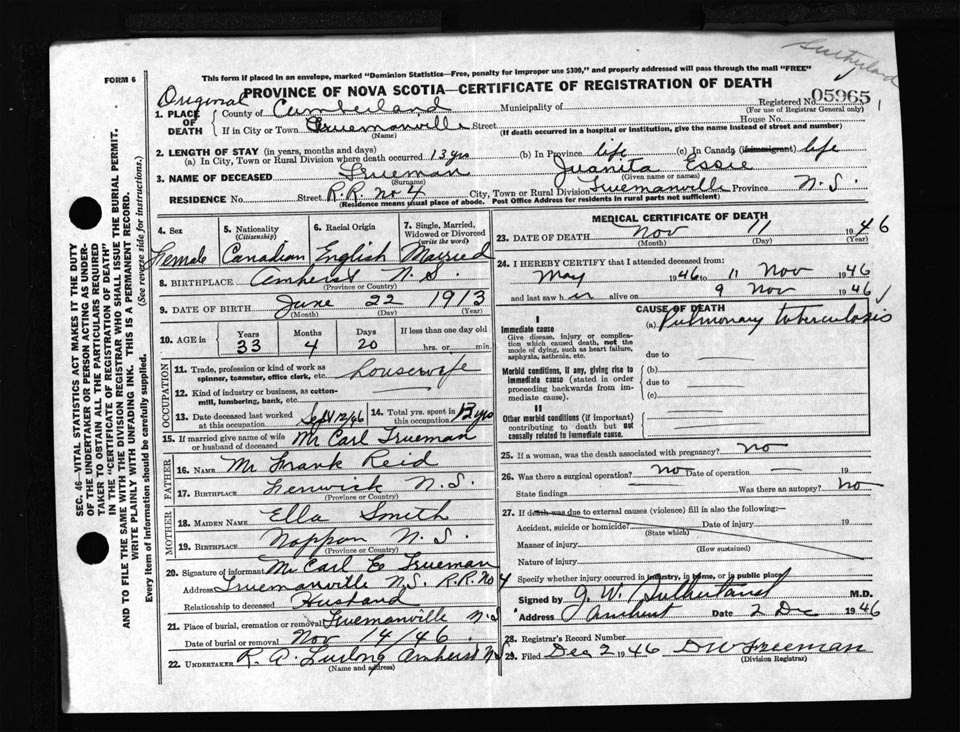 Sutherland
FORM 6
This form if placed in an envelope, marked "Dominion Statistics—Free, penalty for improper use $300," and properly addressed will pass through the mail "FREE"
Original
PROVINCE OF NOVA SCOTIA—CERTIFICATE OF REGISTRATION OF DEATH
Registered No. 05965
(For use of Registrar General only)
1. PLACE OF DEATH
County of Cumberland Municipality of
If in City or Town Truemanville Street House No.
(Name) (If death occurred in a hospital or institution, give the name instead of street and number)
2. LENGTH OF STAY (in years, months and days)
(a) In City, Town or Rural Division where death occurred 13 yrs (b) In Province life (c) In Canada (if immigrant) life
3. NAME OF DECEASED Trueman Juanita Essie
(Surname) (Given name or names)
RESIDENCE No. Street R.R. No 4 City, Town or Rural Division Truemanville Province N.S.
(Residence means usual place of abode. Post Office Address for residents in rural parts not sufficient)
4. Sex
Female
5. Nationality
(Citizenship)
Canadian
6. Racial Origin
English
7. Single, Married, Widowed or Divorced
(write the word)
Married
8. BIRTHPLACE Amherst N.S.
(Province or Country)
9. DATE OF BIRTH June 22 1913
(Month) (Day) (Year)
10. AGE in Years Months Days If less than one day old
33 4 20 hrs. or min.
OCCUPATION
11. Trade, profession or kind of work as
spinner, teamster, office clerk, etc. housewife
12. Kind of industry or business, as cotton-
mill, lumbering, bank, etc.
13. Date deceased last worked
at this occupation Sept 12/46
14. Total yrs. spent in
this occupation 12 yrs
15. If married give name of wife
or husband of deceased Mr Carl Trueman
FATHER
16. NAME Mr Frank Reid
17. BIRTHPLACE Fenwick N.S.
(Province or Country)
MOTHER
18. MAIDEN NAME Ella Smith
19. BIRTHPLACE Nappan N.S.
(Province or Country)
20. Signature of informant Mr Carl E Trueman
Address Truemanville N.S. R.R. No 4
Relationship to deceased Husband
21. Place of burial, cremation or removal Truemanville N.S
Date of burial or removal Nov 14/46
22. UNDERTAKER R. A. Furlong Amherst N.S
(Name and address)
MEDICAL CERTIFICATE OF DEATH
23. DATE OF DEATH Nov 11 1946
(Month) (Day) (Year)
24. I HEREBY CERTIFY that I attended deceased from:
May 1946 to 11 Nov 1946
and last saw her alive on 9 Nov 1946
CAUSE OF DEATH
I
Immediate cause
Give disease, injury or complica-
tion which caused death, not the
mode of dying, such as heart failure,
asphyxia, asthenia, etc.
(a) Pulmonary tuberculosis
due to
Morbid conditions, if any, giving rise to
immediate cause (stated in order
proceeding backwards from im-
mediate cause).
(b)
due to
(c)
II
Other morbid conditions (if important)
contributing to death but not
causally related to immediate cause.
25. If a woman, was the death associated with pregnancy? no
26. Was there a surgical operation? no Date of operation 19
State findings Was there an autopsy? no
27. If death was due to external causes (violence) fill in also the following:—
Accident, suicide or homicide? Date of injury 19
(State which)
Manner of injury
(How sustained)
Nature of injury
Specify whether injury occurred in industry, in home, or in public place
Signed by J. W. Sutherland M.D.
Address Amherst Date 2 Dec 1946
28. Registrar's Record Number
29. Filed Dec 2 1946 D W Freeman
(Division Registrar)
SEC. 46—VITAL STATISTICS ACT MAKES IT THE DUTY
OF THE UNDERTAKER OR PERSON ACTING AS UNDER-
TAKER TO OBTAIN ALL THE PARTICULARS REQUIRED
IN THE "CERTIFICATE OF REGISTRATION OF DEATH"
AND TO FILE THE SAME WITH THE DIVISION REGISTRAR WHO SHALL ISSUE THE BURIAL PERMIT.
WRITE PLAINLY WITH UNFADING INK. THIS IS A PERMANENT RECORD.
Every item of information should be carefully supplied. (See reverse side for instructions.)